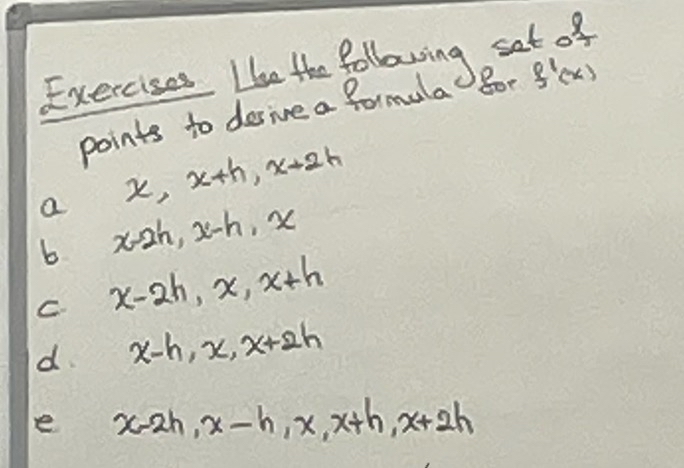 Exercises Use the following set of
points to derive a formula for f'(x)
a x, x+h, x+2h
b x-2h, x-h, x
c. x-2h, x, x+h
d. x-h, x, x+2h
e x-2h, x-h, x, x+h, x+2h